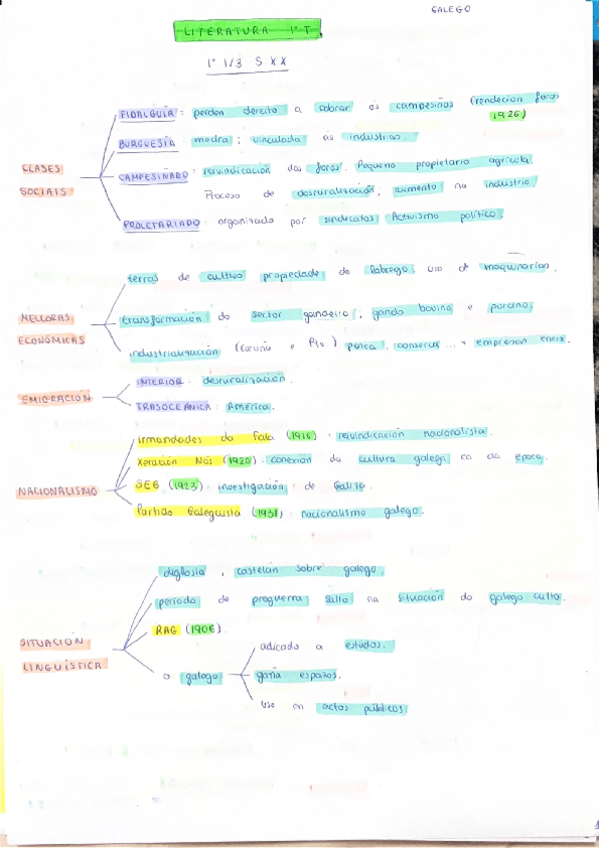 GALEGO
LITERATURA 1º T.
1º 1/3 S XX
CLASES SOCIAIS
FIDALGUÍA: perden dereito a cobrar ós campesiños (rendeción foros 1926)
BURGUESÍA: modra; vinculada ás industrias.
CAMPESIÑADO: reivindicación dos foros. Pequeno propietario agrícola
Proceso de desruralización; aumento na industria
PROLETARIADO: organizado por sindicatos. Activismo político.
MELLORAS ECONÓMICAS
terras de cultivo propiedade do labrego, uso de maquinarias.
transformación do sector gandeiro; gando bovino e porcino;
industrialización (coruña e ) pesca, conserva ... empresas
EMIGRACIÓN
INTERIOR: desruralización.
TRASOCEÁNICA: América.
NACIONALISMO
Irmandades da Fala (1916): reivindicación nacionalista.
Xeración Nós (1920): conexión da cultura galega ca da época.
SEG (1923): investigación de Galiza.
Partido Galeguista (1931): nacionalismo galego.
SITUACIÓN LINGUÍSTICA
diglosia, castelán sobre galego.
período de preguerra; salto na situación do galego culto.
RAG (1906).
o galego
adicado a estudos.
gaña espazos.
uso en actos públicos